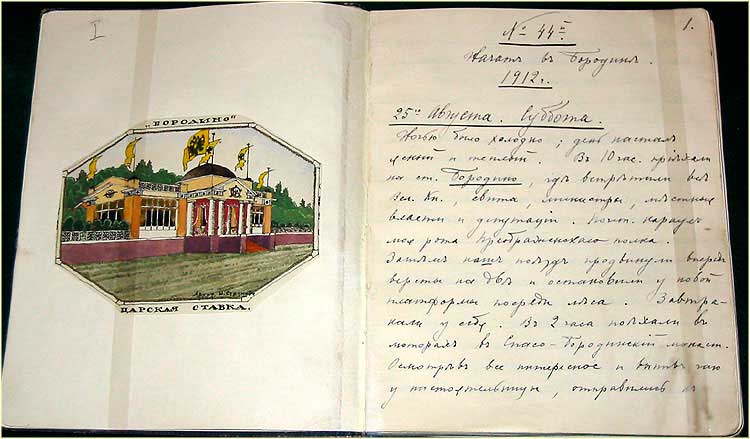 I
„БОРОДИНО"
ЦАРСКАЯ СТАВКА.
1.
№ 44й
Начатъ въ Бородинѣ.
1912 г.
25го Августа. Суббота.
Ночью было холодно; день насталъ
ясный и теплый. Въ 10 час. пріѣхали
на ст. Бородино, где встрѣтили всѣ
Вел. Кн., свита, министры, мѣстныя
власти и депутаціи. Почт. караулъ
моя рота Преображенскаго полка.
Затѣмъ нашъ поѣздъ продвинули впередъ
версты на двѣ и остановили у новой
платформы посреди лѣса. Завтра-
кали у себя. Въ 2 часа поѣхали въ
моторахъ въ Спасо-Бородинскій монаст.
Осмотрѣвъ все интересное и выпивъ чаю
у настоятельницы, отправились къ